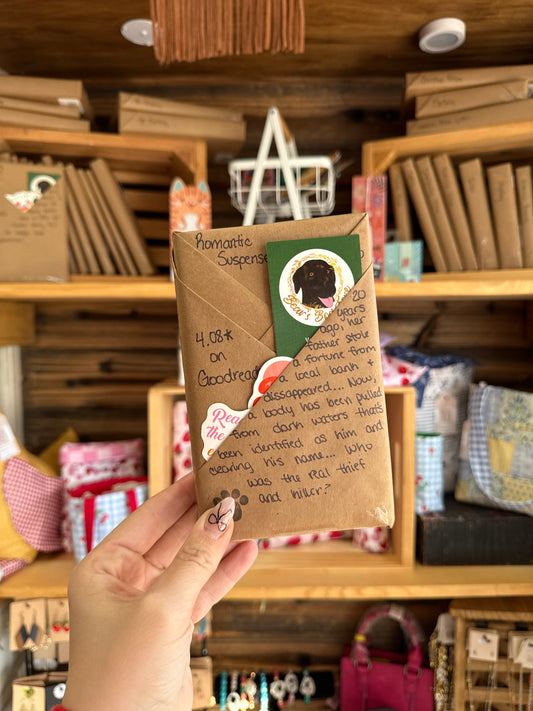 Romantic
Suspense
4.08*
on
Goodreads
Bear's B
20
years
ago, her
father stole
a fortune from
a local bank &
disappeared... Now,
a body has been pulled
from dark waters that's
been identified as him and
clearing his name... who
was the real thief
and killer?
Rea
the